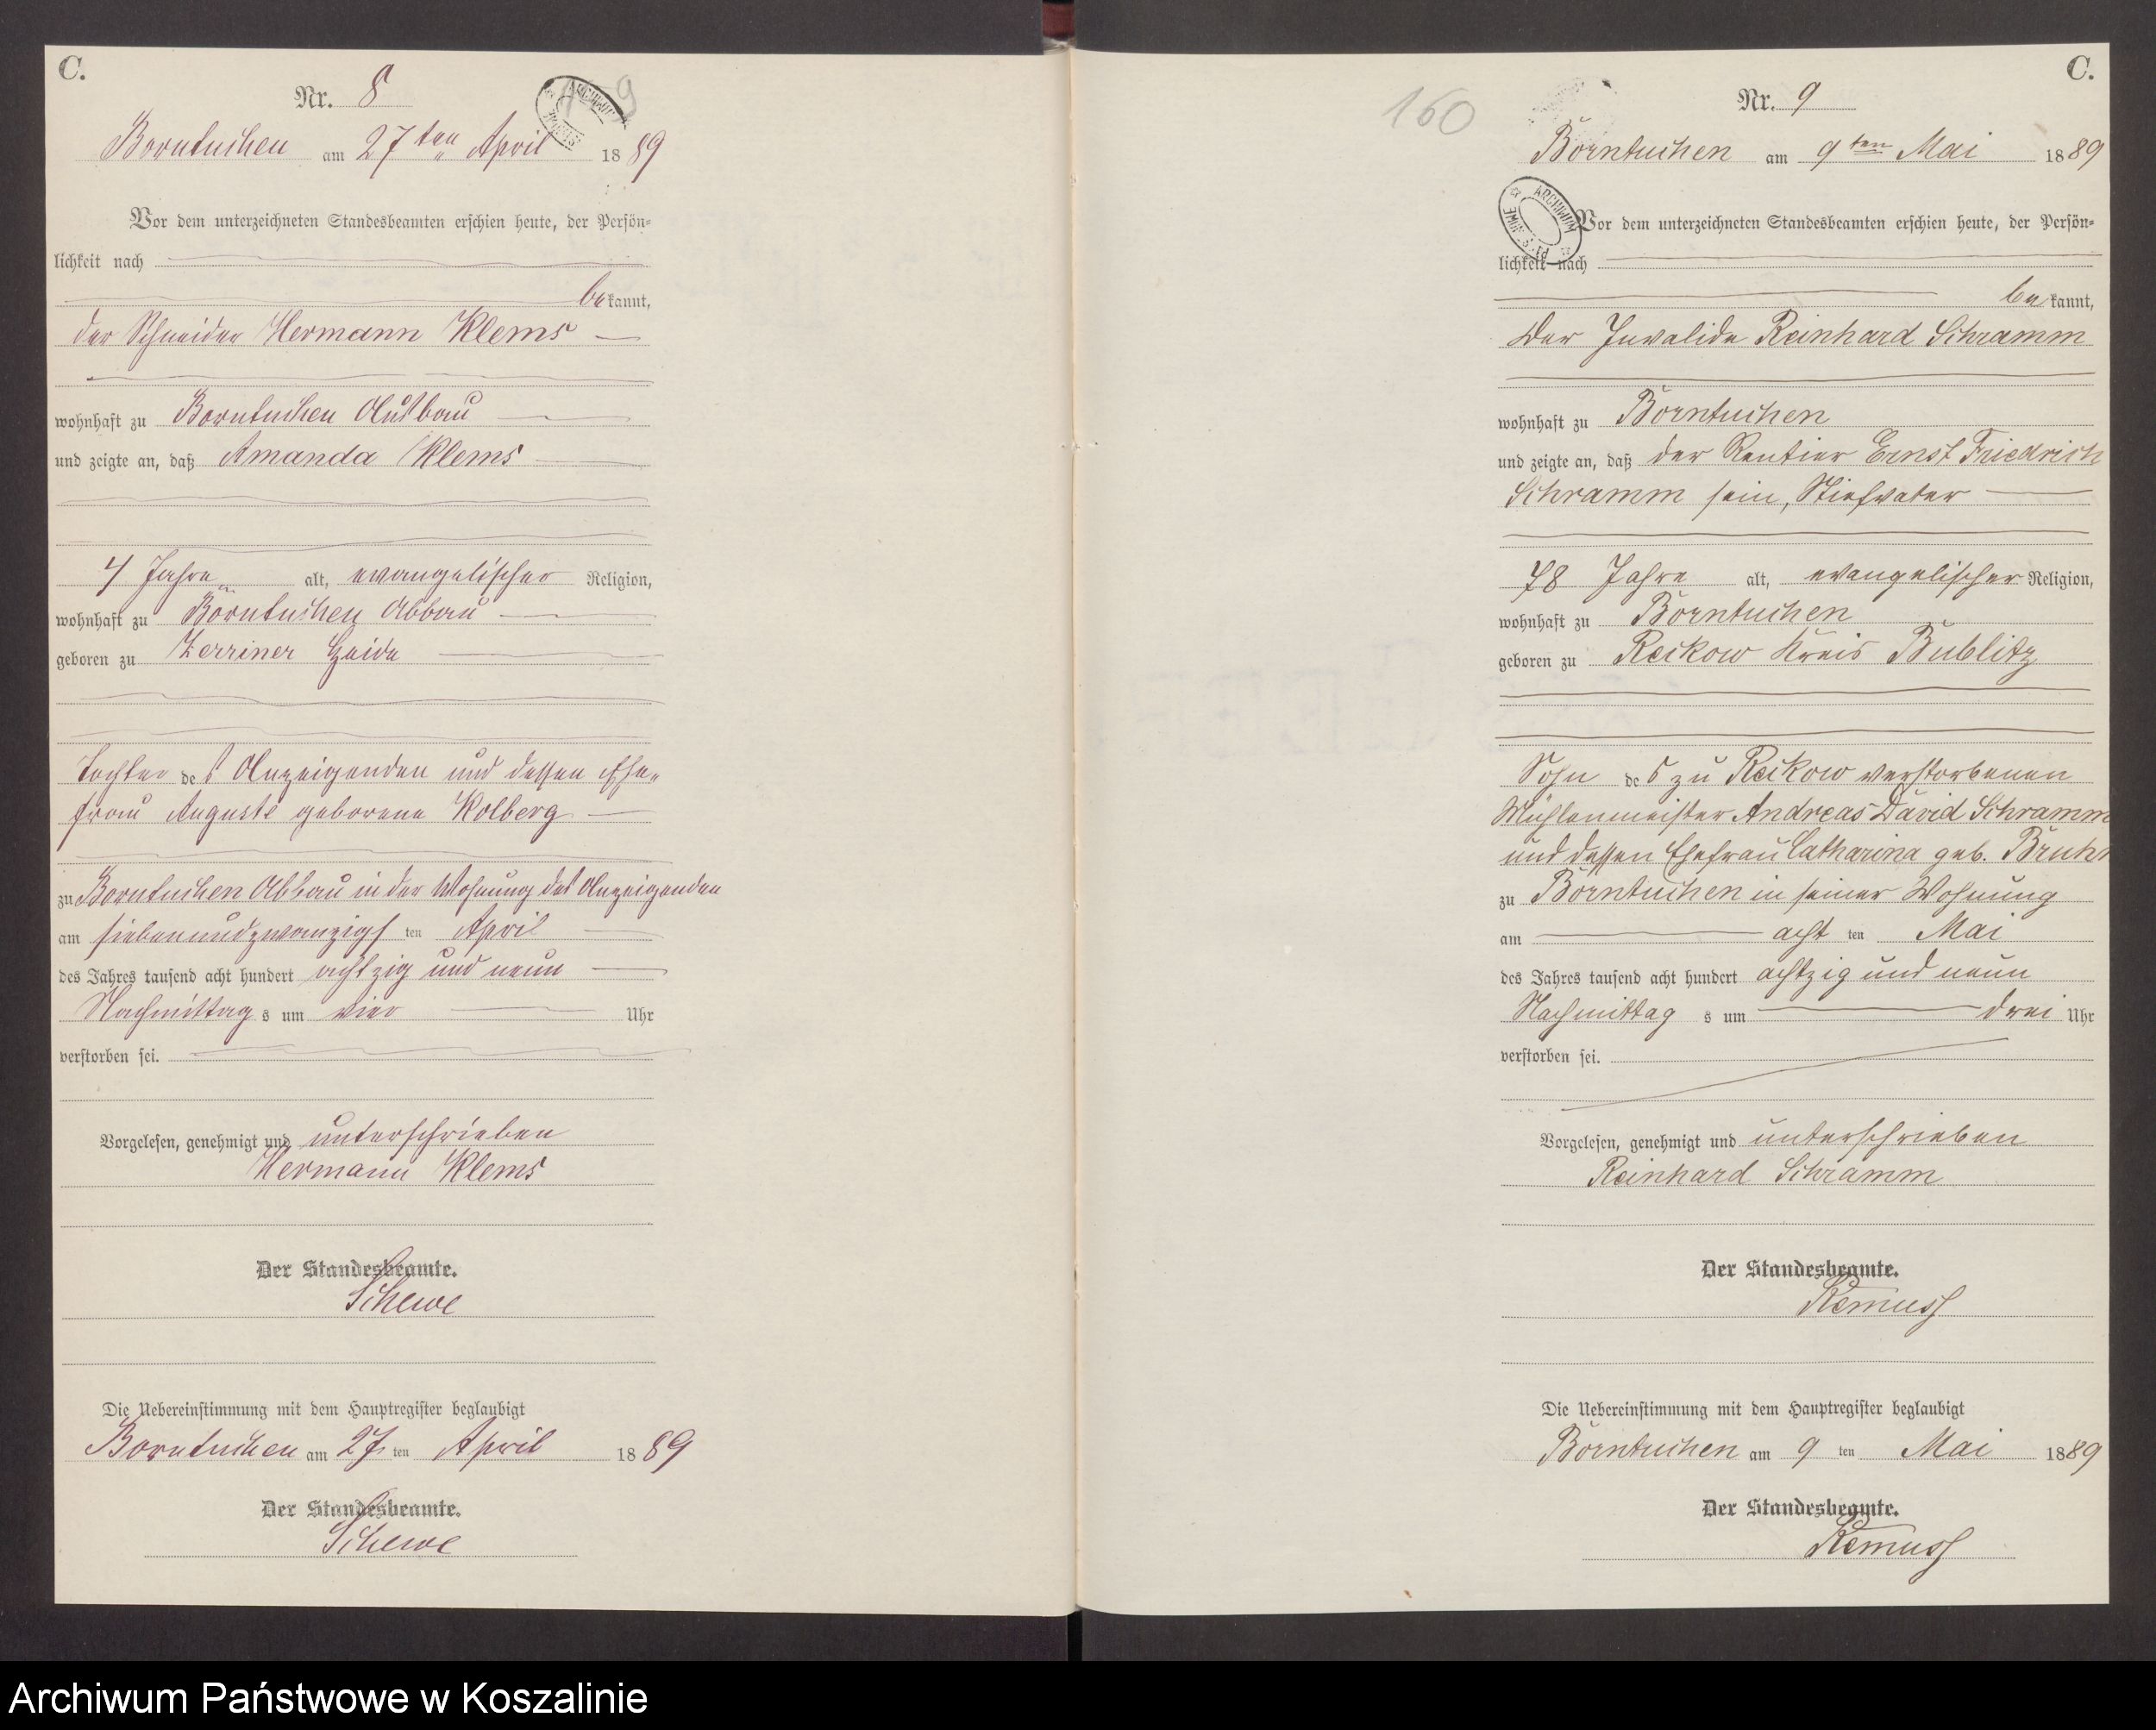 C.
Nr. 8
Borntuchen am 27ten April 1889
Vor dem unterzeichneten Standesbeamten erschien heute, der Persön-
lichkeit nach
bekannt,
der Schneider Hermann Klems
wohnhaft zu Borntuchen Ausbau
und zeigte an, daß Amanda Klems
4 Jahre alt, evangelischer Religion,
wohnhaft zu Borntuchen Abbau
geboren zu Zerriner Heide
Tochter des Anzeigenden und dessen Ehe-
frau Auguste geborene Kolberg
zu Borntuchen Abbau in der Wohnung des Anzeigenden
am siebenundzwanzigsten April
des Jahres tausend acht hundert achtzig und neun
Nachmittags um vier Uhr
verstorben sei.
Vorgelesen, genehmigt und unterschrieben
Hermann Klems
Der Standesbeamte.
Schewe
Die Uebereinstimmung mit dem Hauptregister beglaubigt
Borntuchen am 27ten April 1889
Der Standesbeamte.
Schewe
C.
160
Nr. 9
Borntuchen am 9ten Mai 1889
ARCHIWUM
Vor dem unterzeichneten Standesbeamten erschien heute, der Persön-
lichkeit nach
bekannt,
Der Invalide Reinhard Schramm
wohnhaft zu Borntuchen
und zeigte an, daß der Rentier Ernst Friedrich
Schramm sein, Stiefvater
78 Jahre alt, evangelischer Religion,
wohnhaft zu Borntuchen
geboren zu Reckow Kreis Bublitz
Sohn des zu Reckow verstorbenen
Mühlenmeister Andreas David Schramm
und dessen Ehefrau Catharina geb. Bruhn
zu Borntuchen in seiner Wohnung
am achtten Mai
des Jahres tausend acht hundert achtzig und neun
Nachmittags um drei Uhr
verstorben sei.
Vorgelesen, genehmigt und unterschrieben
Reinhard Schramm
Der Standesbeamte.
Remuss
Die Uebereinstimmung mit dem Hauptregister beglaubigt
Borntuchen am 9ten Mai 1889
Der Standesbeamte.
Remuss
Archiwum Państwowe w Koszalinie